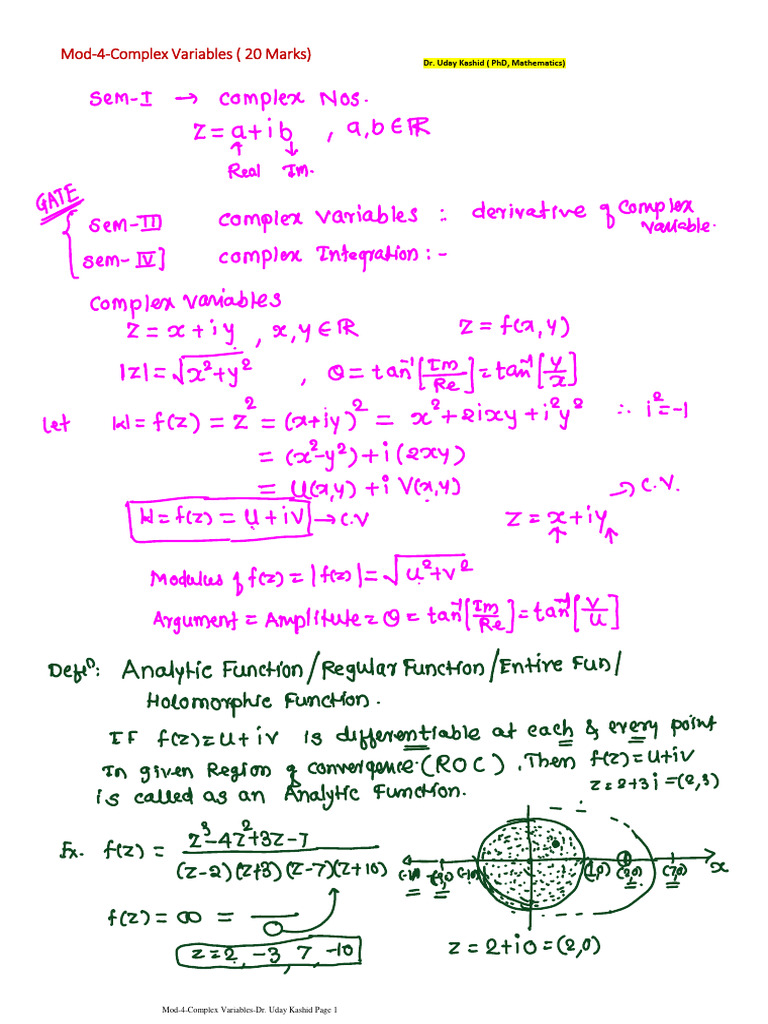 Mod-4-Complex Variables ( 20 Marks)
Dr. Uday Kashid ( PhD, Mathematics)
Sem-I → Complex Nos.
Z = a + i b , a, b ∈ ℝ
↑ ↓
Real Im.
GATE
Sem-III Complex Variables : derivative of Complex Variable.
Sem-IV] Complex Integration : -
Complex Variables
Z = x + i y , x, y ∈ ℝ Z = f(x, y)
|Z| = √x² + y² , θ = tan⁻¹[Im/Re] = tan⁻¹[y/x]
Let W = f(z) = z² = (x+iy)² = x² + 2ixy + i²y² ∴ i² = -1
= (x² - y²) + i (2xy)
= U(x, y) + i V(x, y)
W = f(z) = U + iV → C.V Z = x + iy → C.V.
Modulus of f(z) = |f(z)| = √u² + v²
Argument = Amplitude = θ = tan⁻¹[Im/Re] = tan⁻¹[V/U]
Defⁿ: Analytic Function / Regular Function / Entire Fun /
Holomorphic Function.
IF f(z) = U + iV is differentiable at each & every point
In given Region of Convergence (ROC). Then f(z) = U + iV
is called as an Analytic Function. Z = 2+3i = (2,3)
Ex. f(z) = z³ - 4z² + 3z - 7 / (z-2)(z+3)(z-7)(z+10)
(1,0) (2,0) (7,0) x
f(z) = ∞ = — / 0
Z = 2, -3, 7, -10
Z = 2 + i0 = (2,0)
Mod-4-Complex Variables-Dr. Uday Kashid Page 1